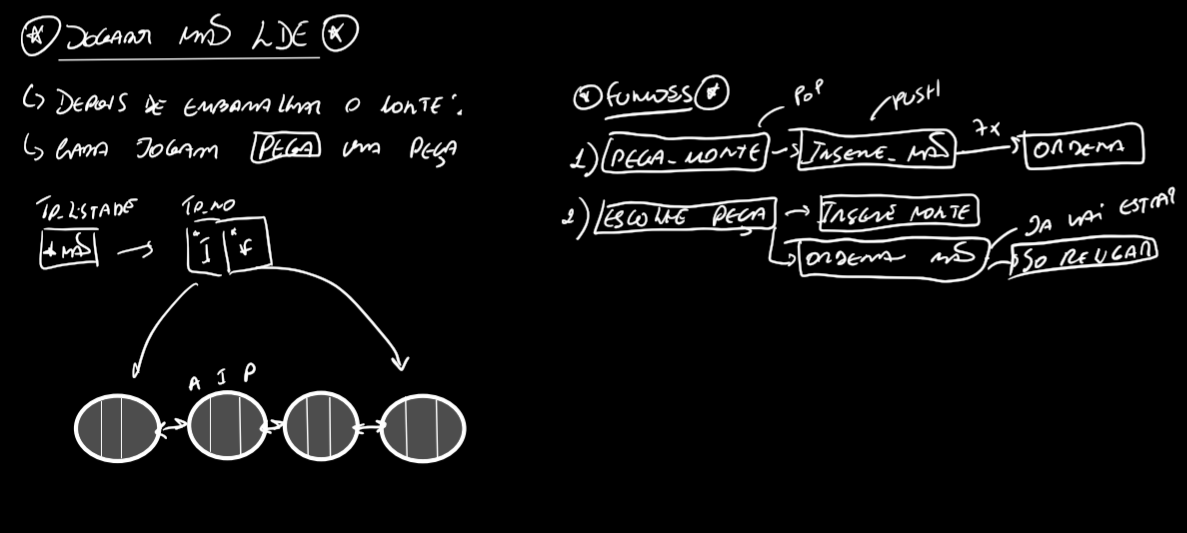 * JOGAR MÃO LDE *
↳ DEPOIS DE EMBARALHAR O MONTE:
↳ CADA JOGAR PEGA UMA PEÇA
TP_LISTADE TP_NO
*MÃO → *I *F
A I P
* FUNÇÕES *
POP PUSH
1) PEGA_MONTE → INSERE_MÃO 7x → ORDENA
2) ESCOLHE PEÇA → INSERE MONTE
ORDENA MÃO → SO REMOVER
JA VAI ESTAR